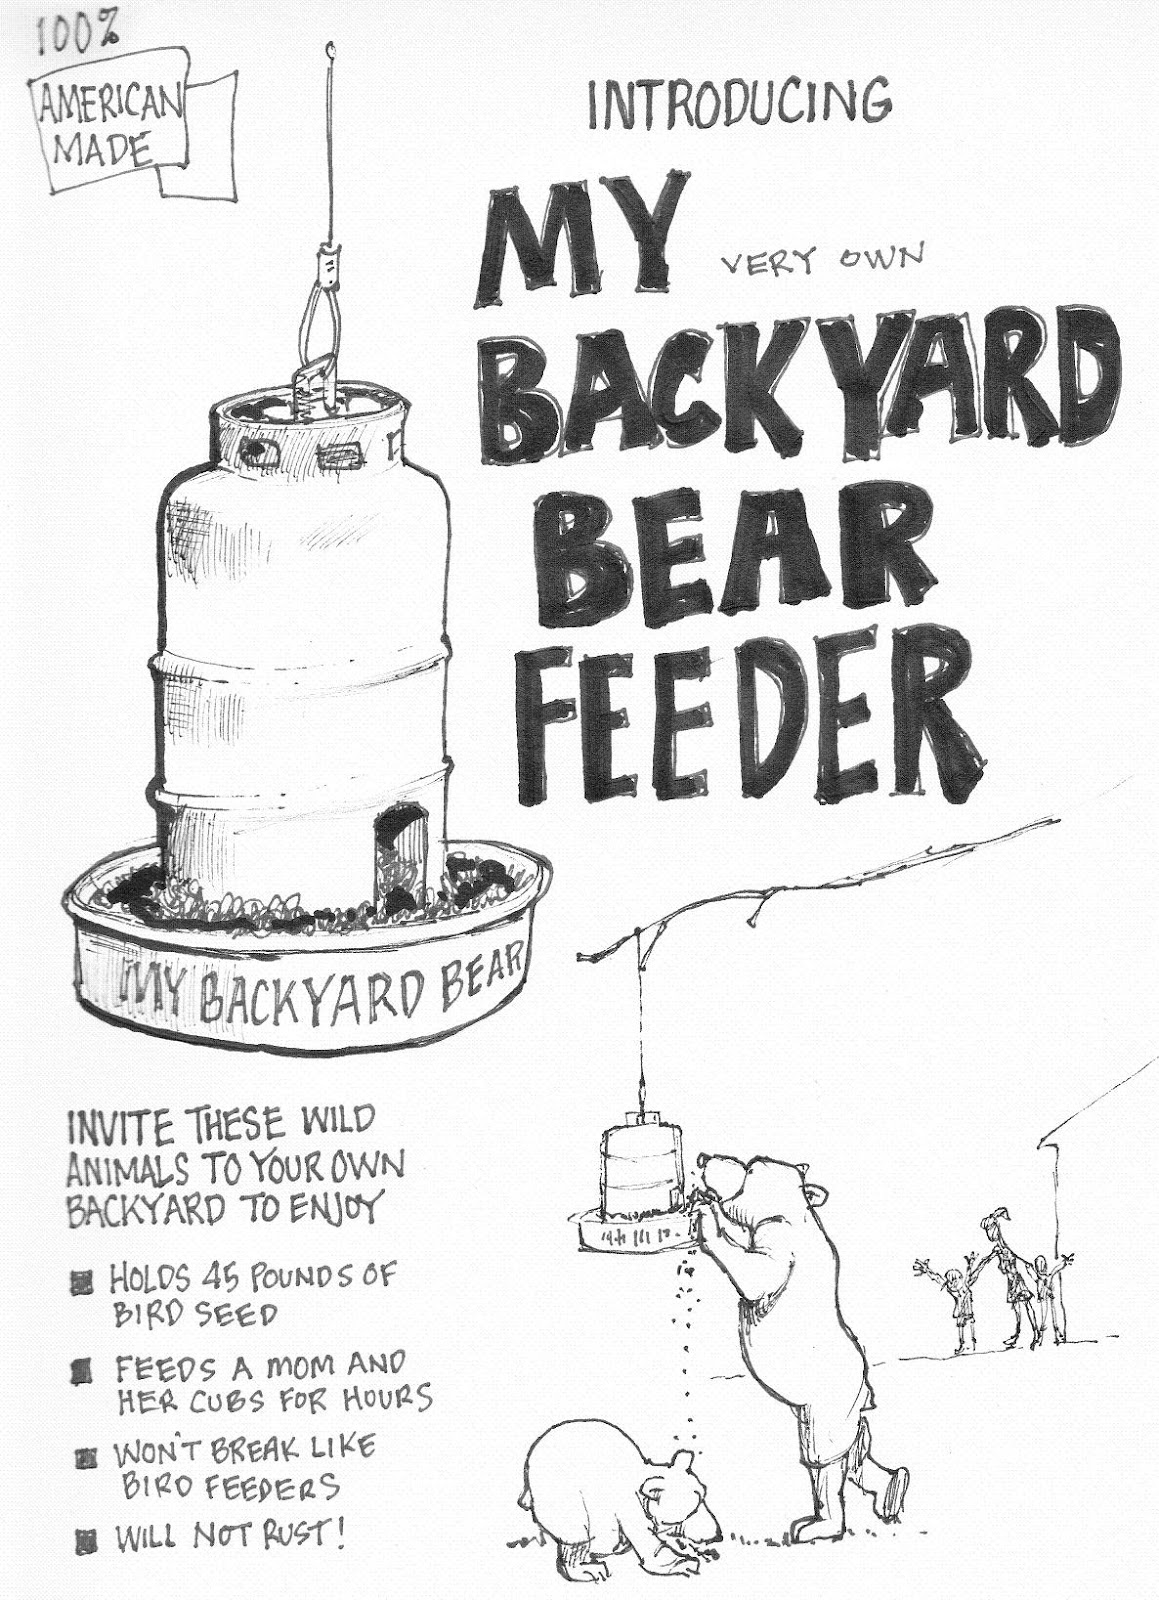 100%
AMERICAN
MADE
INTRODUCING
MY
VERY OWN
BACKYARD
BEAR
FEEDER
MY BACKYARD BEAR
INVITE THESE WILD
ANIMALS TO YOUR OWN
BACKYARD TO ENJOY
HOLDS 45 POUNDS OF
BIRD SEED
FEEDS A MOM AND
HER CUBS FOR HOURS
WON'T BREAK LIKE
BIRD FEEDERS
WILL NOT RUST!